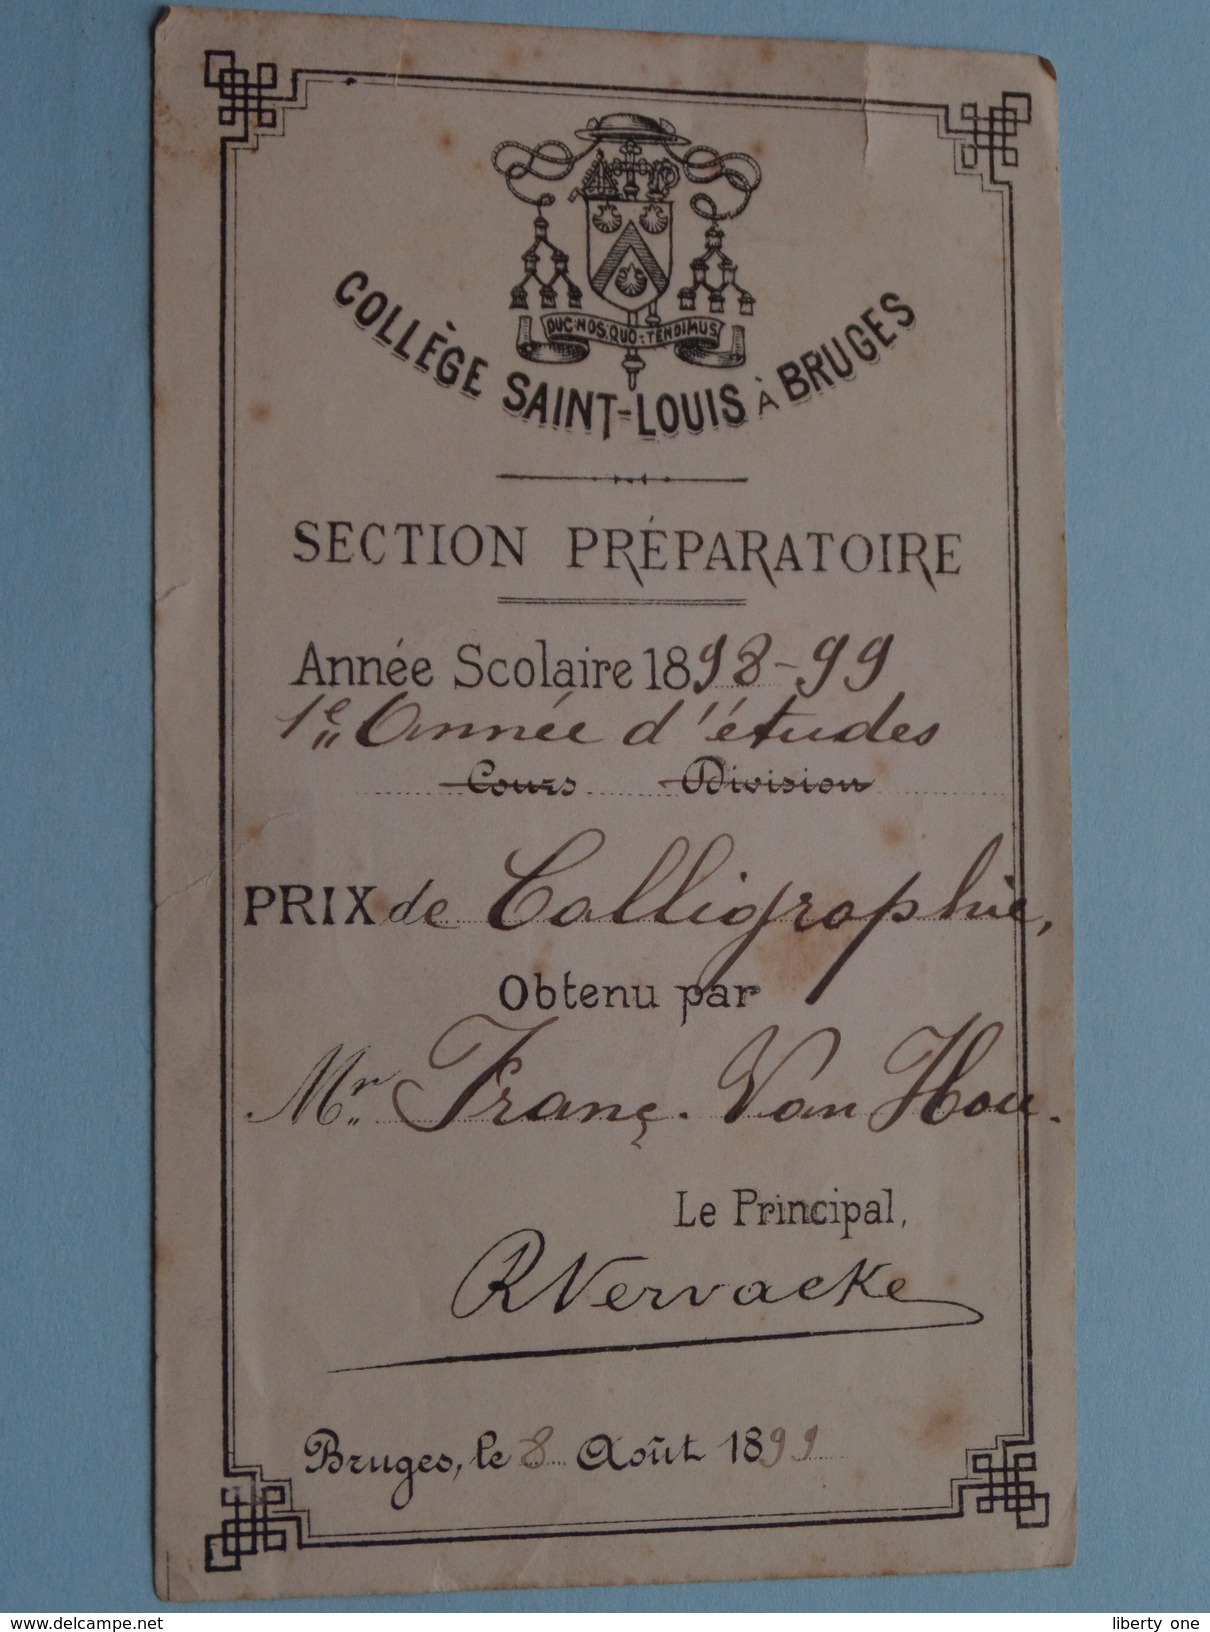 DUC·NOS·QUO·TENDIMUS
COLLÈGE SAINT-LOUIS À BRUGES
SECTION PRÉPARATOIRE
Année Scolaire 1898-99
1e Année d'études
Cours Division
PRIX de Calligraphie,
Obtenu par
Mr Franç. Van Hou.
Le Principal,
R Vervaeke
Bruges, le 8 Août 1899
www.delcampe.net
liberty_one